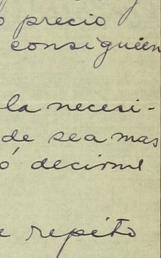 o precio
consiguien
la necesi-
de sea mas
ó decirme
e repito